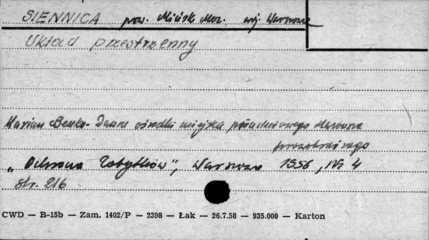 SIENNICA pow. Mińsk Maz. woj. Warszawa
Układ przestrzenny
Marian Benko - Dawne ośrodki miejskie południowego Mazowsza
"Ochrona Zabytków", Warszawa 1956, Nr 4
str. 216
CWD — B-15b — Zam. 1402/P — 2298 — Łak — 26.7.58 — 935.000 — Karton